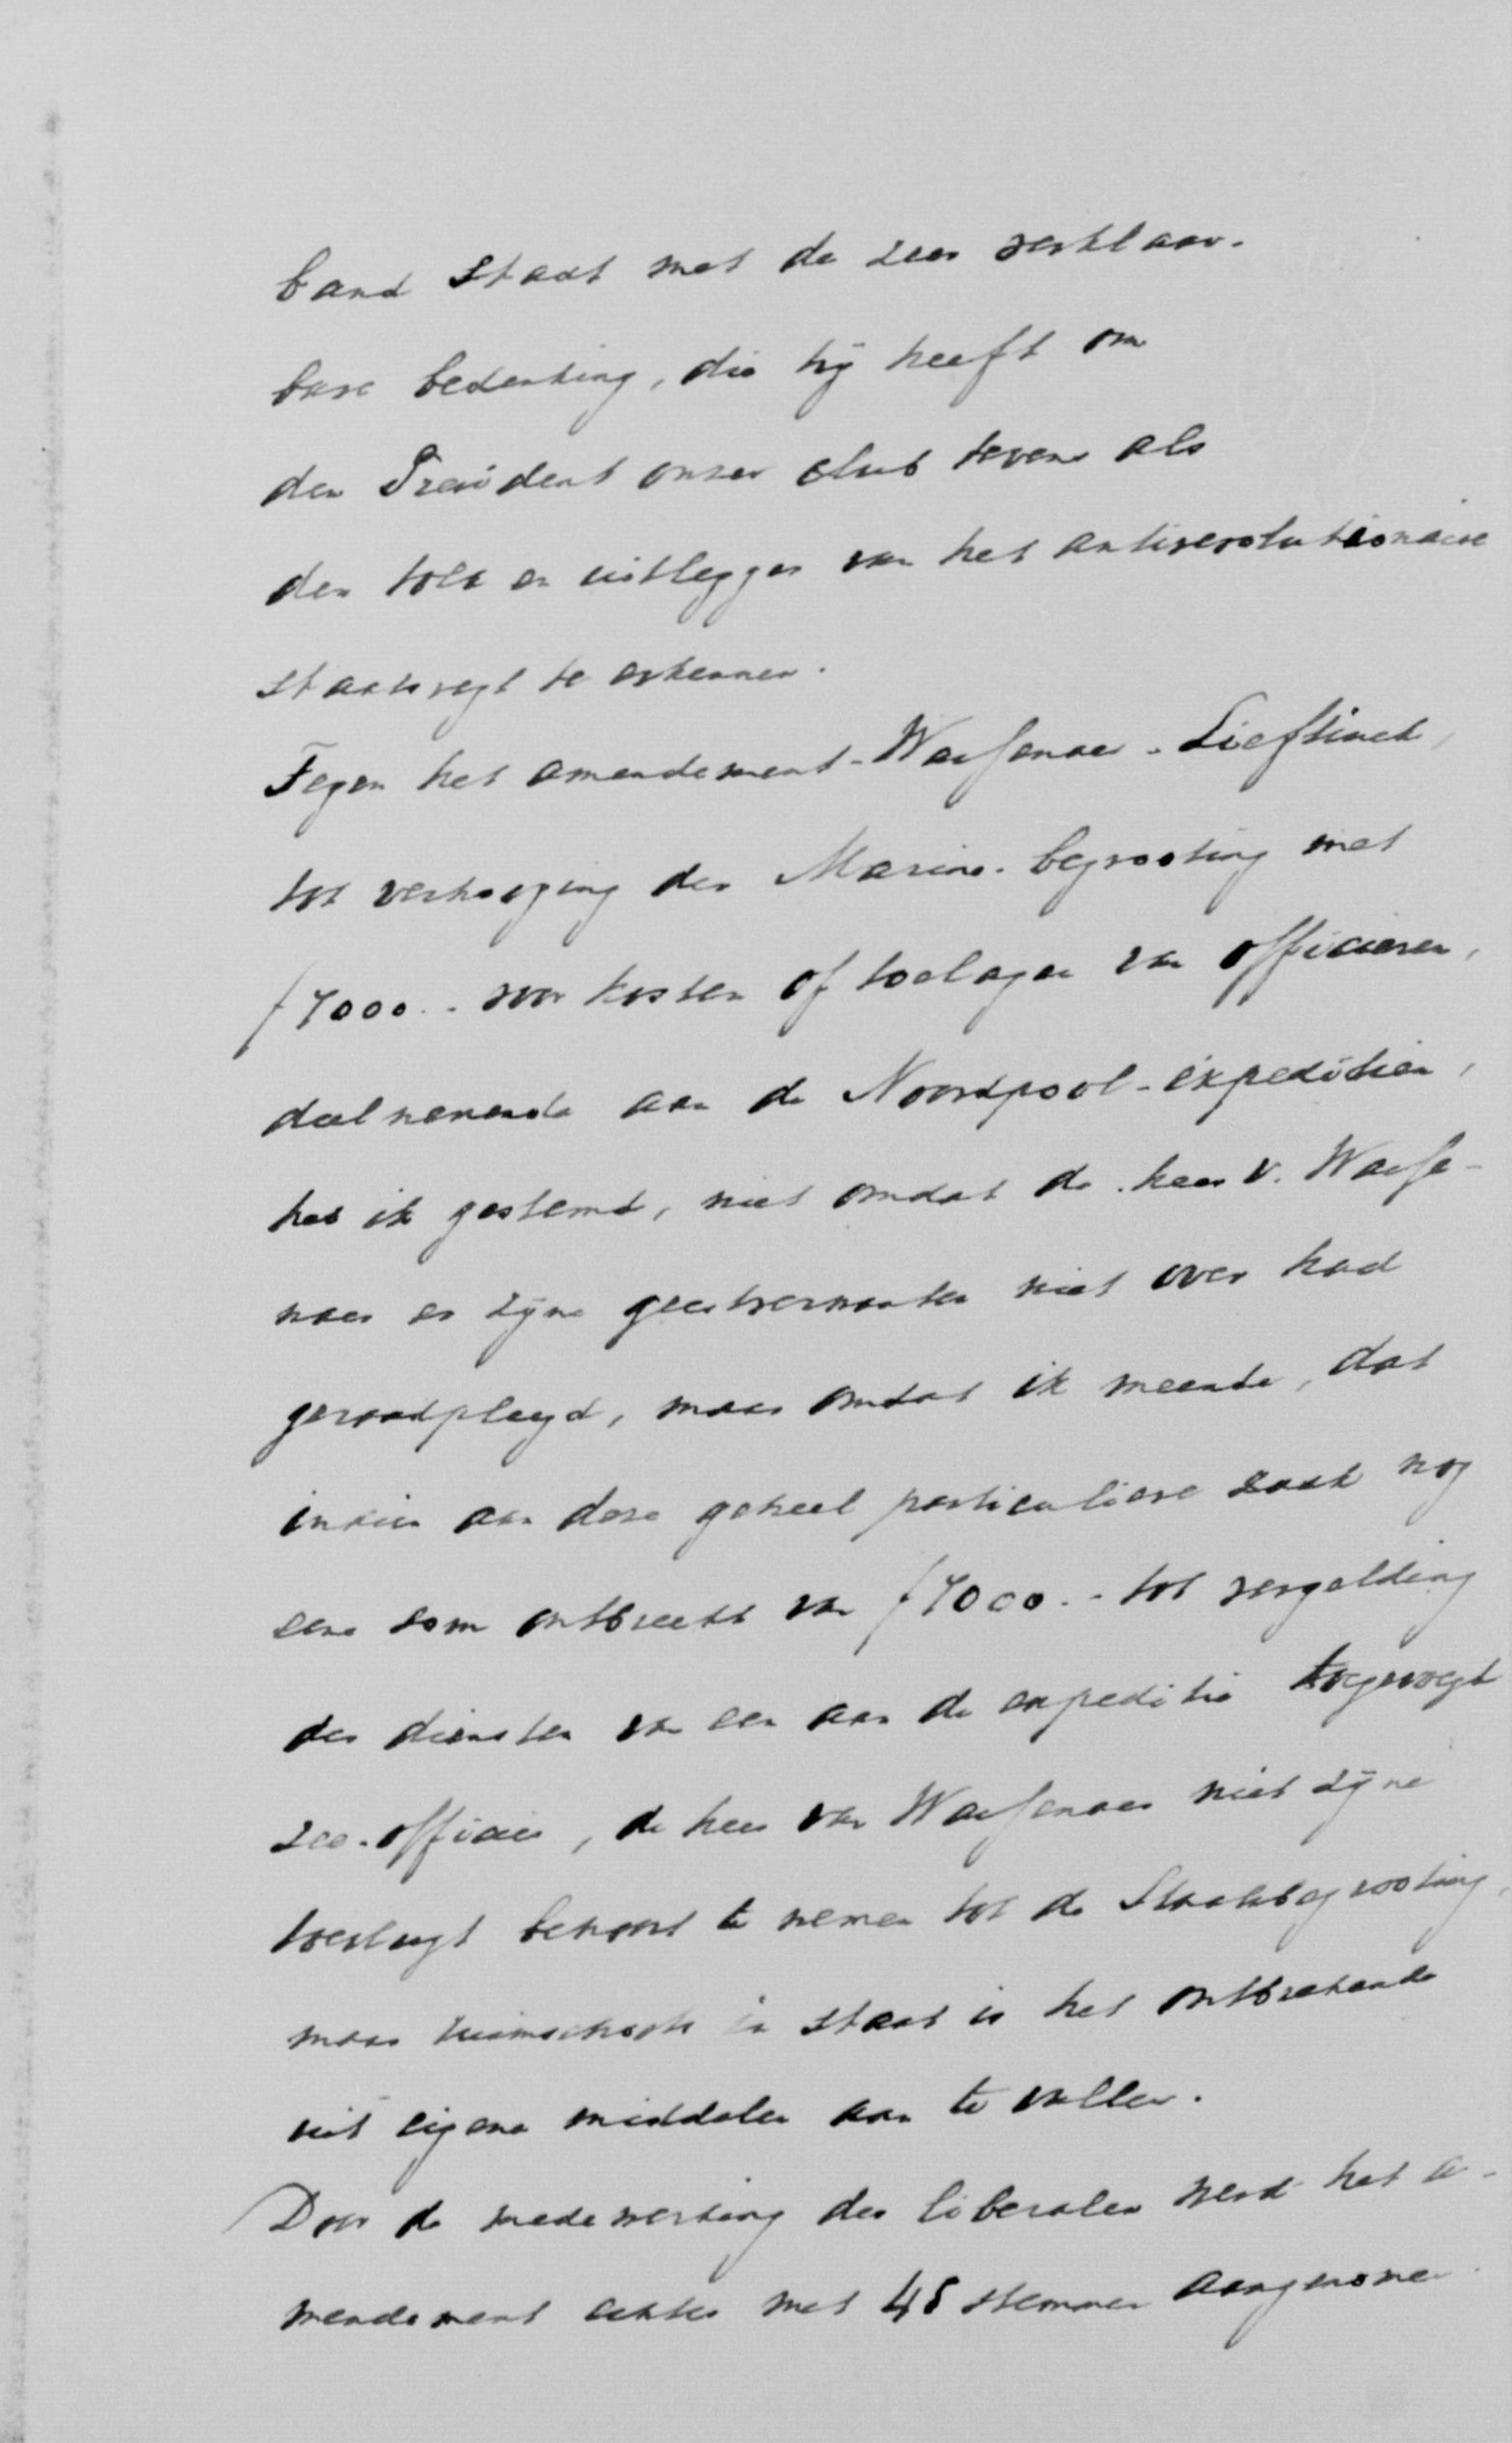 band staat met de zeer verklaar-
bare bedenking, die hij heeft om
den President onzer club tevens als
den tolk en uitlegger van het antirevolutionaire
staatsregt te erkennen.
Tegen het amendement-Wassenaer-Lieftinck,
tot verhooging der Marine-begrooting met
f 7000.- voor kosten of toelagen van officieren,
deelnemende aan de Noordpool-expeditien,
heb ik gestemd, niet omdat de heer v. Wasse-
naer er zijne geestverwanten niet over had
geraadpleegd, maar omdat ik meende, dat
indien aan deze geheel particuliere zaak nog
eene som ontbreekt van f 7000.- tot vergelding
der diensten van een aan de expeditie toegevoegd
zee-officier, de heer van Wassenaer niet zijne
toevlugt behoort te nemen tot de Staatsbegrooting,
maar ruimschoots in staat is het ontbrekende
uit eigene middelen aan te vullen.
Door de medewerking der liberalen werd het a-
mendement echter met 48 stemmen aangenomen